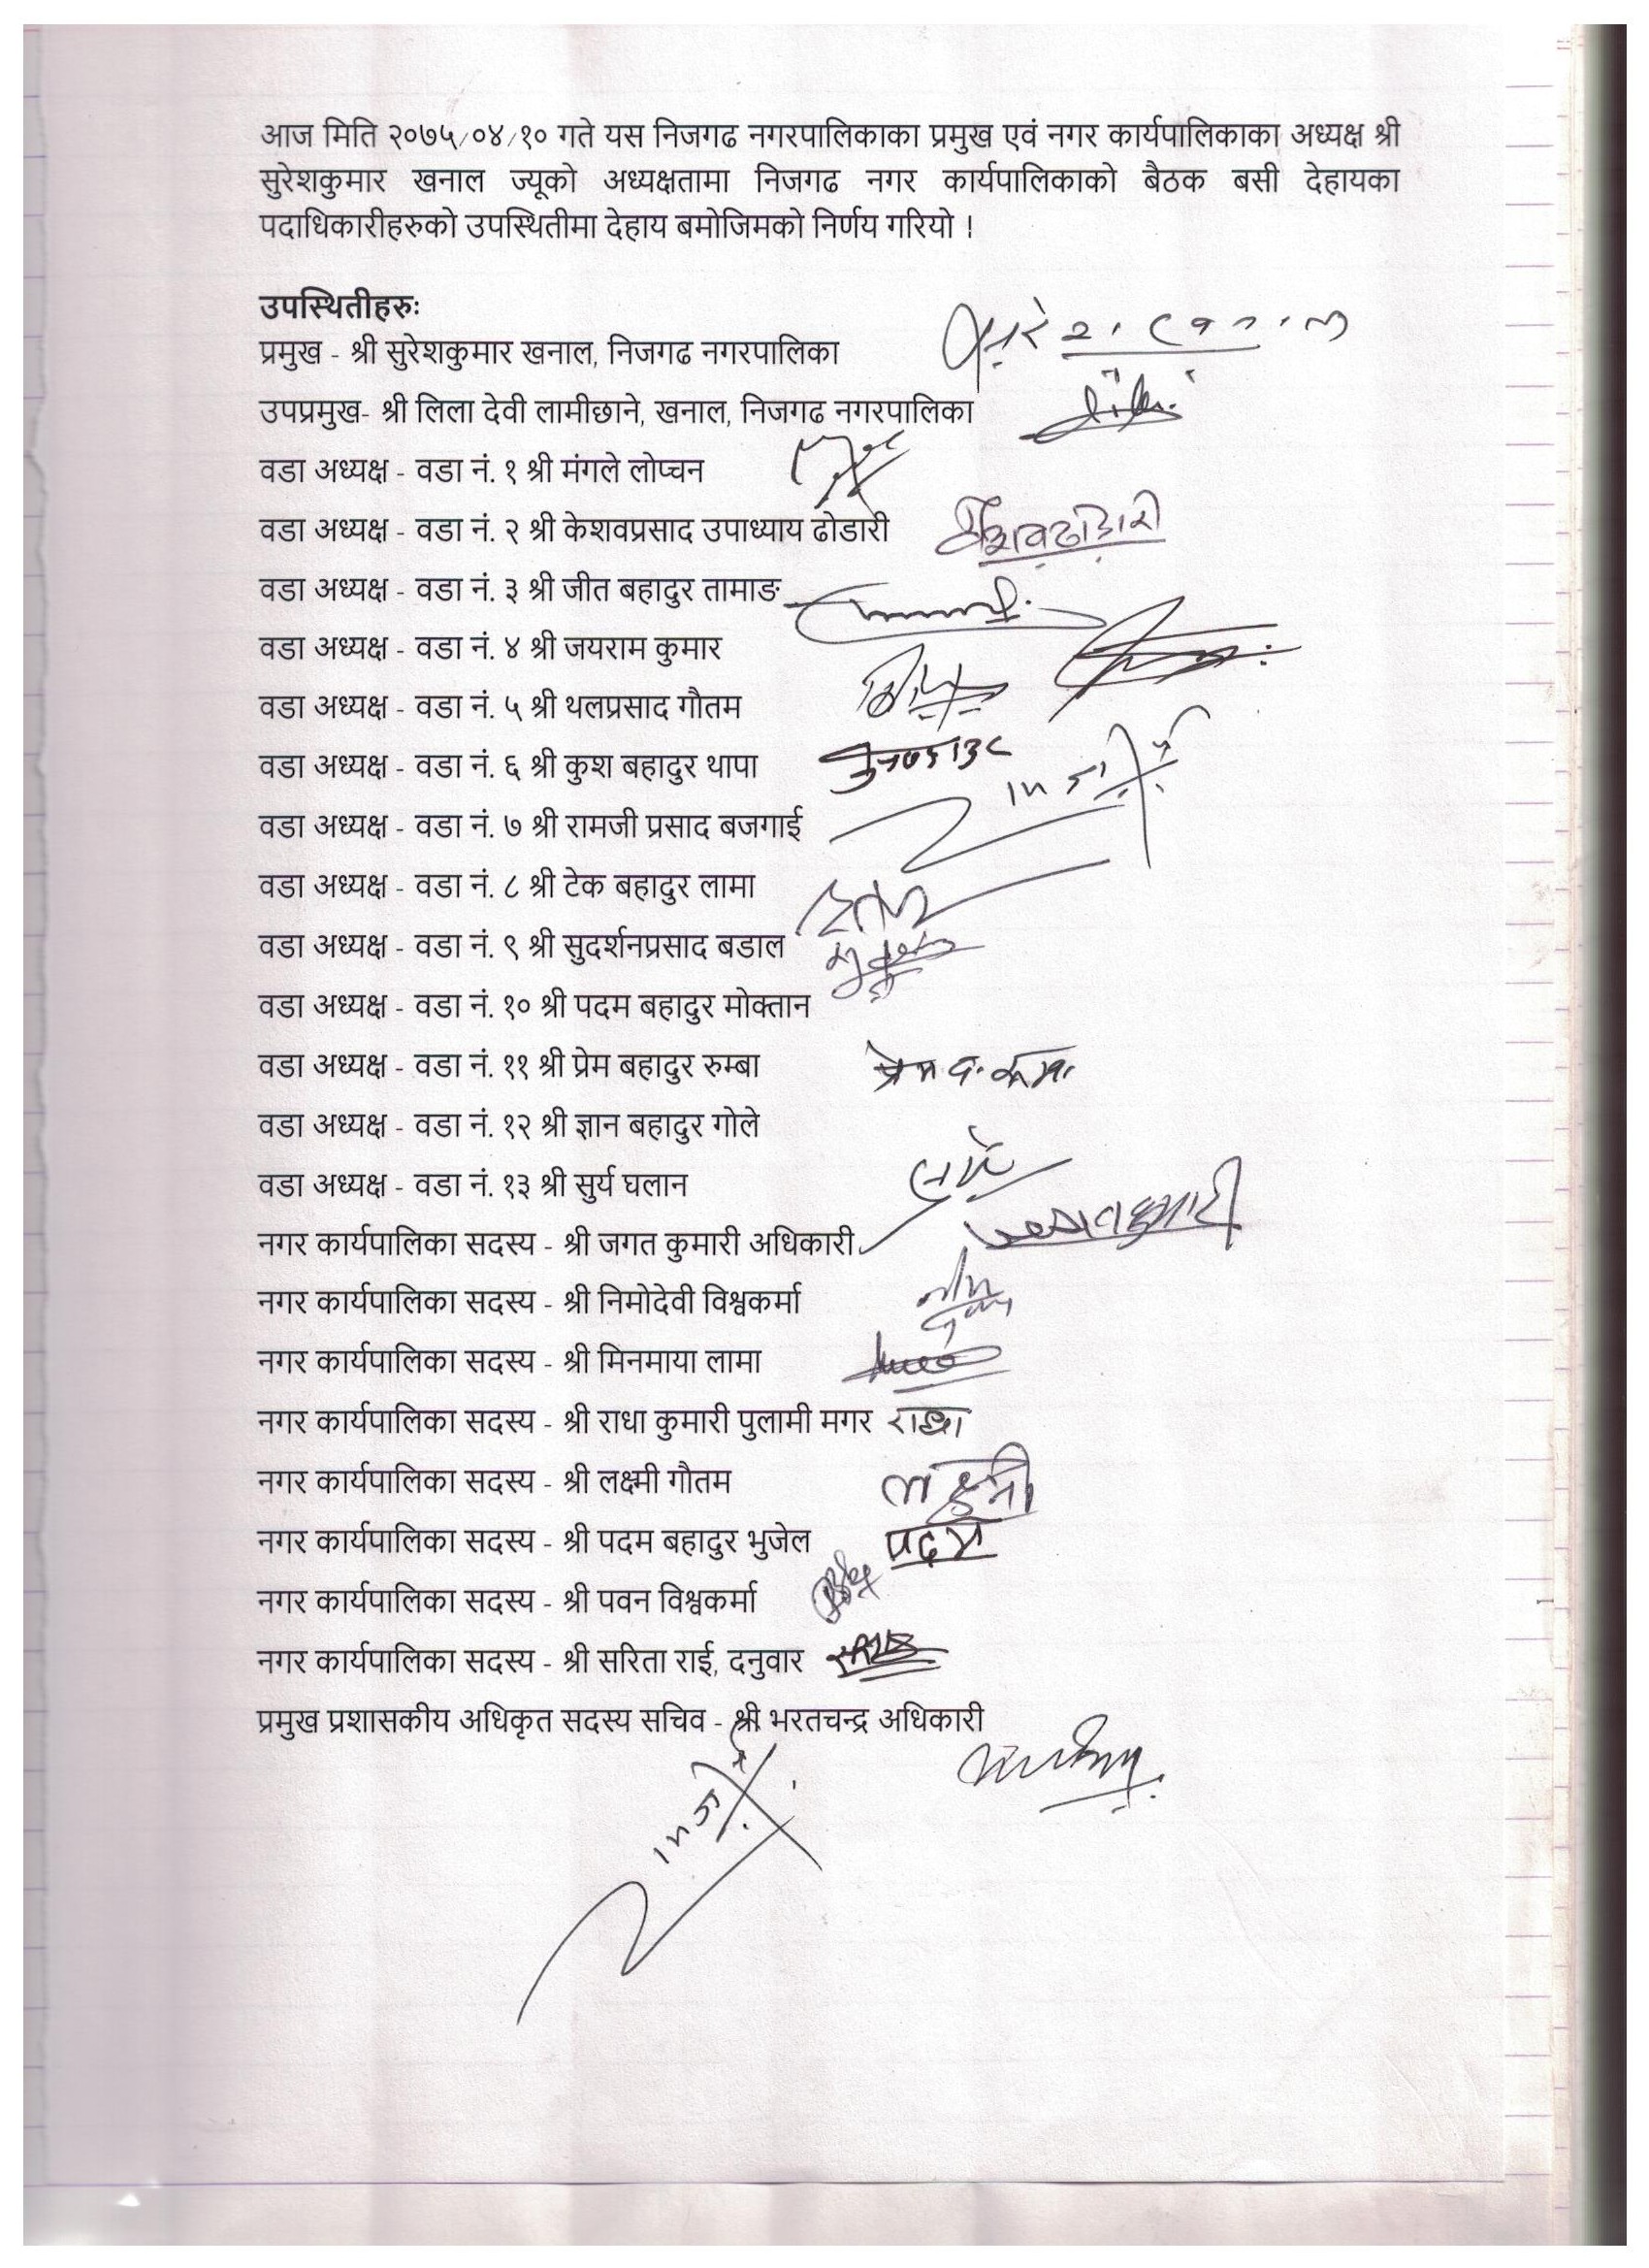 आज मिति २०७५/०४/१० गते यस निजगढ नगरपालिकाका प्रमुख एवं नगर कार्यपालिकाका अध्यक्ष श्री
सुरेशकुमार खनाल ज्यूको अध्यक्षतामा निजगढ नगर कार्यपालिकाको बैठक बसी देहायका
पदाधिकारीहरुको उपस्थितीमा देहाय बमोजिमको निर्णय गरियो !
उपस्थितीहरुः
प्रमुख - श्री सुरेशकुमार खनाल, निजगढ नगरपालिका
उपप्रमुख- श्री लिला देवी लामीछाने, खनाल, निजगढ नगरपालिका
वडा अध्यक्ष - वडा नं. १ श्री मंगले लोप्चन
वडा अध्यक्ष - वडा नं. २ श्री केशवप्रसाद उपाध्याय ढोडारी
वडा अध्यक्ष - वडा नं. ३ श्री जीत बहादुर तामाङ
वडा अध्यक्ष - वडा नं. ४ श्री जयराम कुमार
वडा अध्यक्ष - वडा नं. ५ श्री थलप्रसाद गौतम
वडा अध्यक्ष - वडा नं. ६ श्री कुश बहादुर थापा
वडा अध्यक्ष - वडा नं. ७ श्री रामजी प्रसाद बजगाई
वडा अध्यक्ष - वडा नं. ८ श्री टेक बहादुर लामा
वडा अध्यक्ष - वडा नं. ९ श्री सुदर्शनप्रसाद बडाल
वडा अध्यक्ष - वडा नं. १० श्री पदम बहादुर मोक्तान
वडा अध्यक्ष - वडा नं. ११ श्री प्रेम बहादुर रुम्बा
वडा अध्यक्ष - वडा नं. १२ श्री ज्ञान बहादुर गोले
वडा अध्यक्ष - वडा नं. १३ श्री सुर्य घलान
नगर कार्यपालिका सदस्य - श्री जगत कुमारी अधिकारी
नगर कार्यपालिका सदस्य - श्री निमोदेवी विश्वकर्मा
नगर कार्यपालिका सदस्य - श्री मिनमाया लामा
नगर कार्यपालिका सदस्य - श्री राधा कुमारी पुलामी मगर राधा
नगर कार्यपालिका सदस्य - श्री लक्ष्मी गौतम लक्ष्मी
नगर कार्यपालिका सदस्य - श्री पदम बहादुर भुजेल पदम
नगर कार्यपालिका सदस्य - श्री पवन विश्वकर्मा
नगर कार्यपालिका सदस्य - श्री सरिता राई, दनुवार
प्रमुख प्रशासकीय अधिकृत सदस्य सचिव - श्री भरतचन्द्र अधिकारी